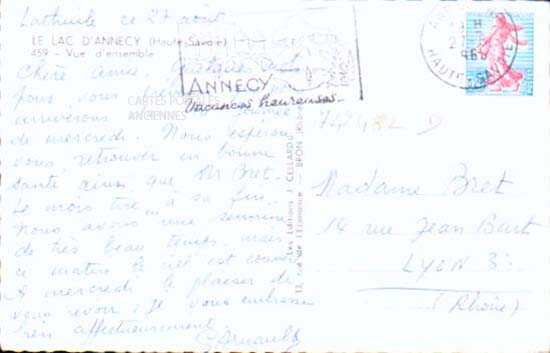 Lathuile ce 27 août
LE LAC D'ANNECY (Haute-Savoie)
459 - Vue d'ensemble
Chère amie,
vous
arriverons
de mercredi. Nous espérons
vous retrouver en bonne
santé ainsi que Mr Bret.
Le mois tire à sa fin.
Nous avons une semaine
de très beau temps, mais
ce matin le ciel est couvert
A mercredi le plaisir de
vous revoir, je vous embrasse
bien affectueusement
CARTES POSTALES
ANCIENNES
ANNECY
Vacances heureuses
HAUTE-SAVOIE
Les Editions J. CELLARD
13, rue de l'Economie - BRON (Rhône)
Madame Bret
14 rue Jean Bart
LYON 3
(Rhône)